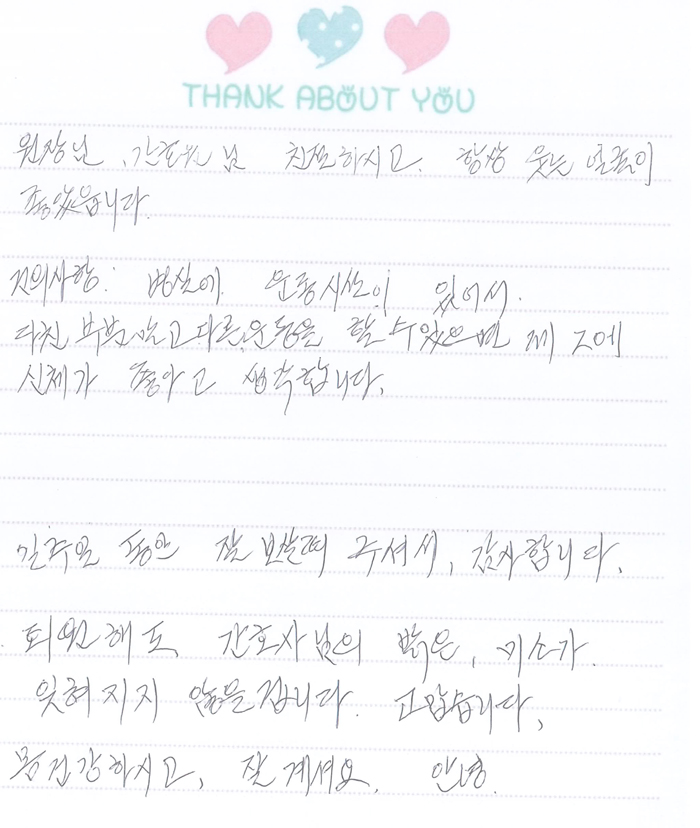 THANK ABOUT YOU
원장님, 간호원님 친절하시고. 항상 웃는 얼굴이
좋았습니다.
건의사항: 병실에 운동시설이 있어서.
다친 부분 말고 다른 운동을 할 수 있으면
신체가 좋아고 생각합니다.
간주일 동안 잘 보살펴 주셔서, 감사합니다.
퇴원해도 간호사님의 밝은, 미소가.
잊혀지지 않을겁니다. 고맙습니다,
몸건강하시고, 잘 계셔요. 안녕.